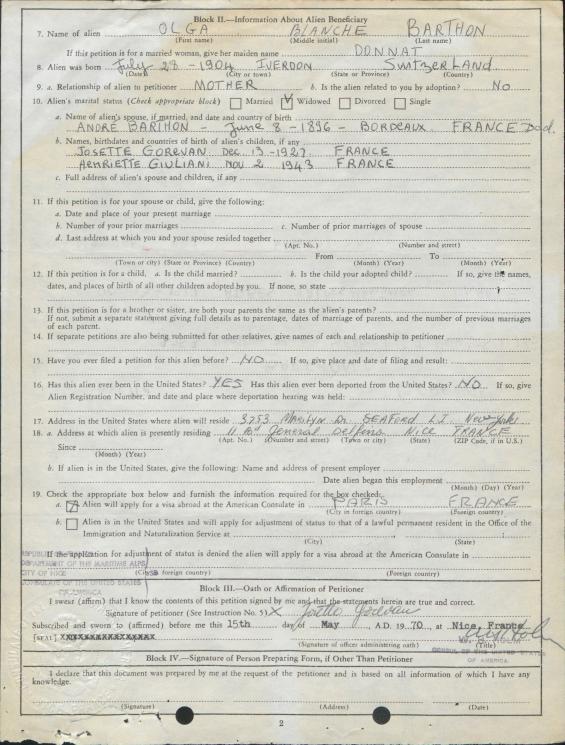 Block II.—Information About Alien Beneficiary
7. Name of alien OLGA BLANCHE BARTHON
(First name) (Middle initial) (Last name)
If this petition is for a married woman, give her maiden name DONNAT
8. Alien was born July 28 - 1904 IVERDON SWITZERLAND
(Date) (City or town) (State or Province) (Country)
9. a. Relationship of alien to petitioner MOTHER b. Is the alien related to you by adoption? NO
10. Alien's marital status (Check appropriate block) Married Widowed Divorced Single
a. Name of alien's spouse, if married, and date and country of birth
ANDRÉ BARTHON - June 8 - 1896 - BORDEAUX FRANCE
b. Names, birthdates and countries of birth of alien's children, if any
JOSETTE GOREVAN Dec 13 -1927 FRANCE
HENRIETTE GIULIANI NOV 2 1943 FRANCE
c. Full address of alien's spouse and children, if any
11. If this petition is for your spouse or child, give the following:
a. Date and place of your present marriage
b. Number of your prior marriages c. Number of prior marriages of spouse
d. Last address at which you and your spouse resided together
(Apt. No.) (Number and street)
From To
(Town or city) (State or Province) (Country) (Month) (Year) (Month) (Year)
12. If this petition is for a child, a. Is the child married? b. Is the child your adopted child? If so, give the names,
dates, and places of birth of all other children adopted by you. If none, so state
13. If this petition is for a brother or sister, are both your parents the same as the alien's parents?
If not, submit a separate statement giving full details as to parentage, dates of marriage of parents, and the number of previous marriages
of each parent.
14. If separate petitions are also being submitted for other relatives, give names of each and relationship to petitioner
15. Have you ever filed a petition for this alien before? NO If so, give place and date of filing and result:
16. Has this alien ever been in the United States? YES Has this alien ever been deported from the United States? NO If so, give
Alien Registration Number, and date and place where deportation hearing was held:
17. Address in the United States where alien will reside 3753 Marilyn Dr SEAFORD L.I. New York
18. a. Address at which alien is presently residing General NICE FRANCE
(Apt. No.) (Number and street) (Town or city) (State) (ZIP Code, if in U.S.)
Since
(Month) (Year)
b. If alien is in the United States, give the following: Name and address of present employer
Date alien began this employment
(Month) (Day) (Year)
19. Check the appropriate box below and furnish the information required for the box checked:
a. Alien will apply for a visa abroad at the American Consulate in PARIS FRANCE
(City in foreign country) (Foreign country)
b. Alien is in the United States and will apply for adjustment of status to that of a lawful permanent resident in the Office of the
Immigration and Naturalization Service at
(City) (State)
If the application for adjustment of status is denied the alien will apply for a visa abroad at the American Consulate in
(City in foreign country) (Foreign country)
DEPARTMENT OF THE MARITIME ALPS
CITY OF NICE
CONSULATE OF THE UNITED STATES
OF AMERICA
Block III.—Oath or Affirmation of Petitioner
I swear (affirm) that I know the contents of this petition signed by me and that the statements herein are true and correct.
Signature of petitioner (See Instruction No. 5) X
Subscribed and sworn to (affirmed) before me this 15th day of May A.D. 1970, at Nice, France
[SEAL] XXXXXXXXXXXXXXXX
(Signature of officer administering oath) (Title)
CONSUL OF THE UNITED STATES
OF AMERICA
Block IV.—Signature of Person Preparing Form, if Other Than Petitioner
I declare that this document was prepared by me at the request of the petitioner and is based on all information of which I have any
knowledge.
(Signature) (Address) (Date)
2